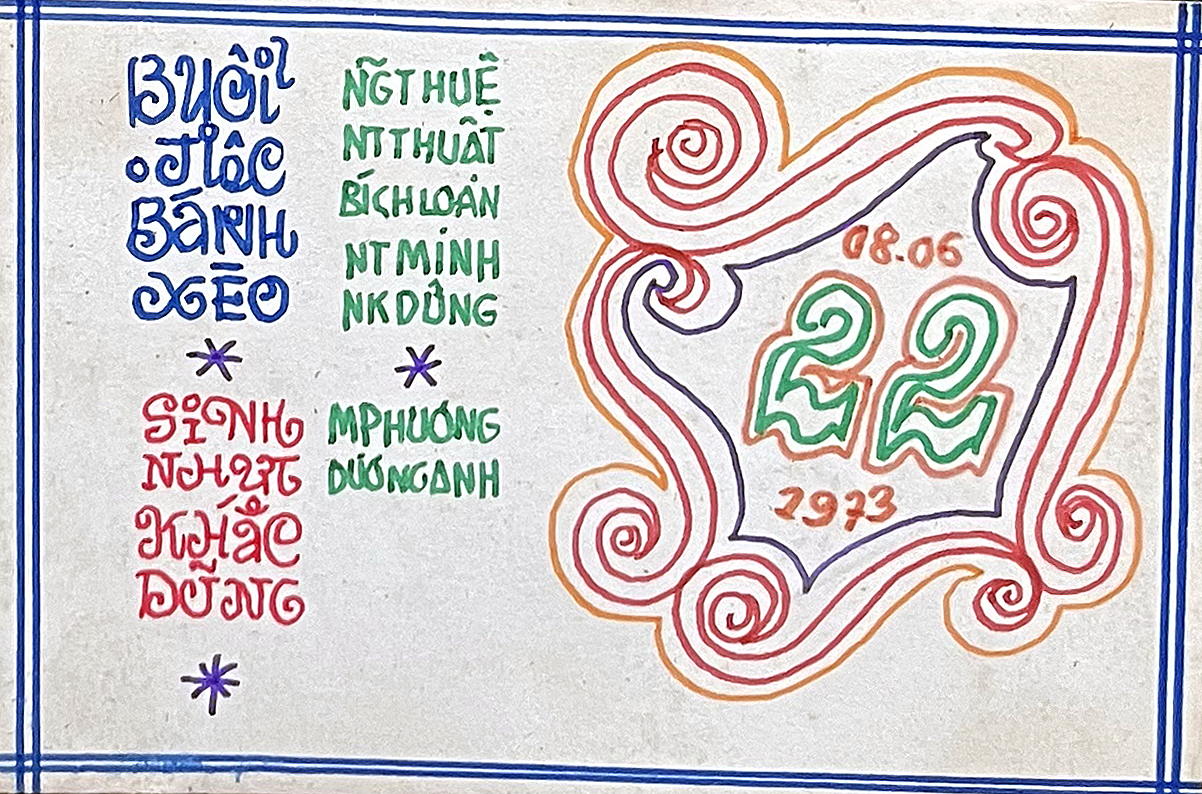 BUỔI
TIỆC
BÁNH
XÈO
SINH
NHỰT
KHẮC
DŨNG
NGT HUỆ
NT THUẬT
BÍCH LOAN
NT MINH
NK DŨNG
M PHƯƠNG
DƯƠNG ANH
08.06
22
1973